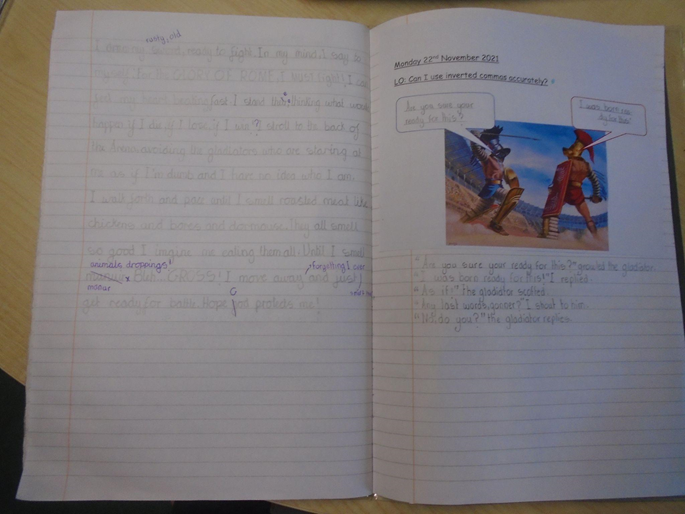 rusty, old
I         sword, ready to fight. In my mind, I say to
myself, For the GLORY OF ROME I must fight! I can
feel my heart beating fast. I start thinking what would
happen if I die, if I lose, if I         ? I stroll to the back of
the Arena avoiding the gladiators who are staring at
me as if I'm dumb and I have no idea who I am.
I walk forth and         until I smell roasted meat like
chickens and         and doormouse. They all smell
so good I imagine me eating them all. Until I smell
animals droppings!
                forgetting I ever
manure         GROSS! I move away and just
manure
                        smelt
G
get ready for battle. Hope god protects me!
Monday 22nd November 2021
LO: Can I use inverted commas accurately?
Are you sure your
ready for this?
I was born re-
ady for this!
"Are you sure your ready for this?" growled the gladiator.
"I was born ready for this!" I replied.
"As if!" The gladiator scoffed.
"Any last words,         ?" I shout to him.
"        , do you?" the gladiator replies.